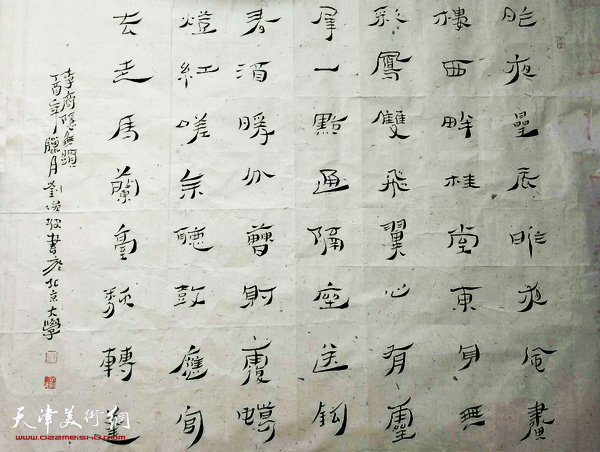 昨夜星辰昨夜風畫
樓西畔桂堂東身無
彩鳳雙飛翼心有靈
犀一點通隔座送鈎
春酒暖分曹射覆蠟
燈紅嗟余聽鼓應官
去走馬蘭臺類轉蓬
李商隱無題
丁酉年臘月劉書於北京大學
天津美術網
www.022meishu.com